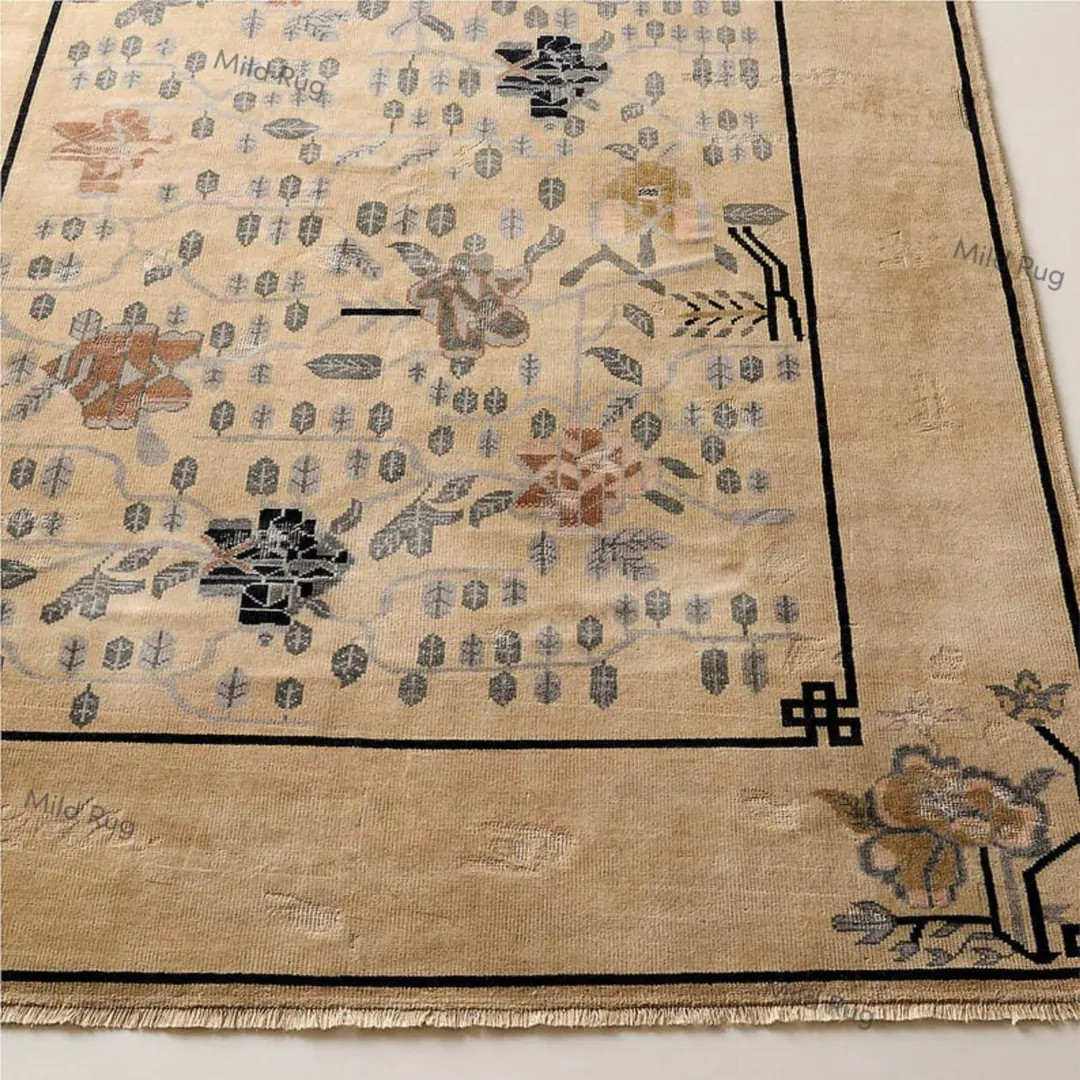 Mild Rug
Mild Rug
Mild Rug
Mild Rug